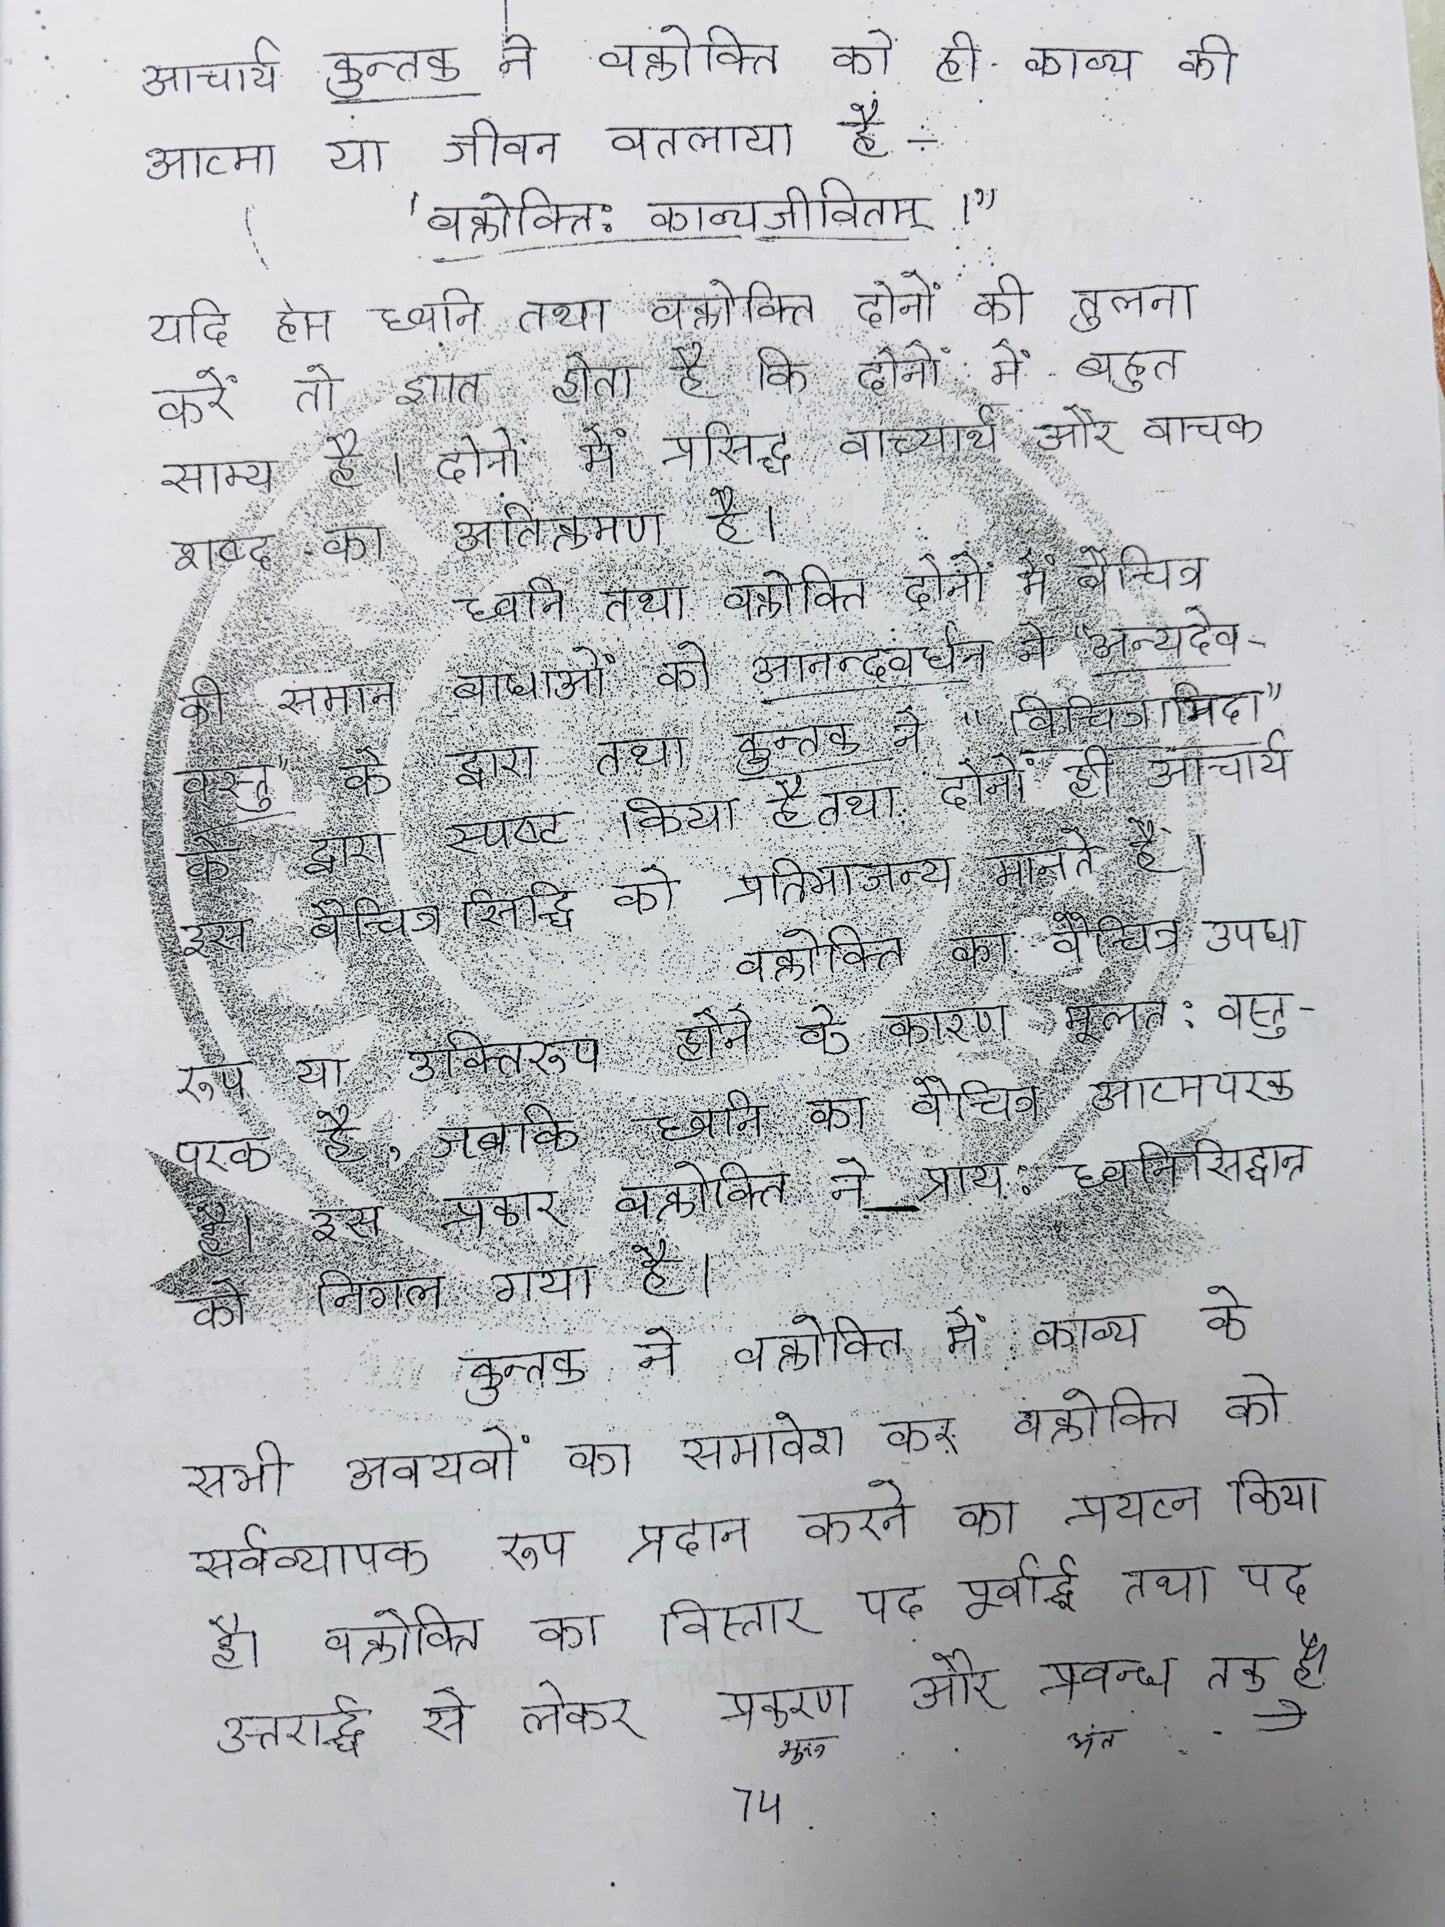 आचार्य कुन्तक ने वक्रोक्ति को ही काव्य की
आत्मा या जीवन वतलाया है -
'वक्रोक्तिः काव्यजीवितम् ।"
यदि हम ध्वनि तथा वक्रोक्ति दोनों की तुलना
करें तो ज्ञात होता है कि दोनों में बहुत
साम्य है। दोनों में प्रसिद्ध वाच्यार्थ और वाचक
शब्द का अतिक्रमण है।
ध्वनि तथा वक्रोक्ति दोनों में वैचित्र
की समान बाधाओं को आनन्दवर्धन ने "अन्यदेव-
वस्तु" के द्वारा तथा कुन्तक ने "विचित्रामिदा"
के द्वारा स्पष्ट किया है तथा दोनों ही आचार्य
इस वैचित्र सिद्धि को प्रतिभाजन्य मानते है।
वक्रोक्ति का वैचित्र उपधा
रूप या उक्तिरूप होने के कारण मूलत: वस्तु-
परक है, जबकि ध्वनि का वैचित्र आत्मपरक
है। इस प्रकार वक्रोक्ति ने प्राय: ध्वनिसिद्वान्त
को निगल गया है।
कुन्तक ने वक्रोक्ति में काव्य के
सभी अवयवों का समावेश कर वक्रोक्ति को
सर्वव्यापक रूप प्रदान करने का प्रयत्न किया
है। वक्रोक्ति का विस्तार पद पूर्वार्द्ध तथा पद
उत्तरार्द्ध से लेकर प्रकरण और प्रवन्ध तक है।
अंत
74